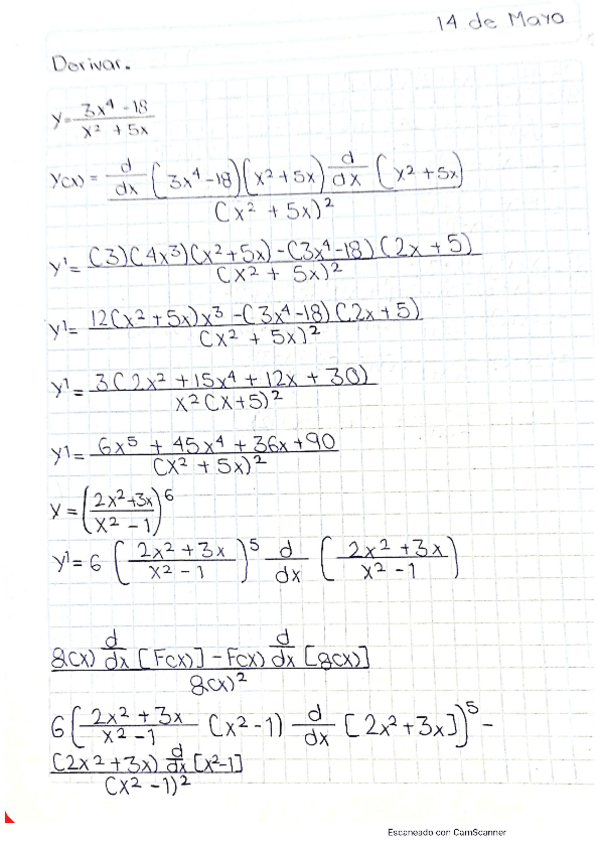 14 de Mayo
Derivar.
y = \frac{3x^4 - 18}{x^2 + 5x}
y(x) = \frac{\frac{d}{dx}(3x^4 - 18)(x^2 + 5x)\frac{d}{dx}(x^2 + 5x)}{(x^2 + 5x)^2}
y' = \frac{(3)(4x^3)(x^2 + 5x) - (3x^4 - 18)(2x + 5)}{(x^2 + 5x)^2}
y' = \frac{12(x^2 + 5x)x^3 - (3x^4 - 18)(2x + 5)}{(x^2 + 5x)^2}
y' = \frac{3(2x^2 + 15x^4 + 12x + 30)}{x^2(x + 5)^2}
y' = \frac{6x^5 + 45x^4 + 36x + 90}{(x^2 + 5x)^2}
y = \left(\frac{2x^2 + 3x}{x^2 - 1}\right)^6
y' = 6\left(\frac{2x^2 + 3x}{x^2 - 1}\right)^5 \frac{d}{dx}\left(\frac{2x^2 + 3x}{x^2 - 1}\right)
\frac{g(x)\frac{d}{dx}[F(x)] - F(x)\frac{d}{dx}[g(x)]}{g(x)^2}
6\left(\frac{2x^2 + 3x}{x^2 - 1}(x^2 - 1)\frac{d}{dx}[2x^2 + 3x]\right)^5 -
\frac{(2x^2 + 3x)\frac{d}{dx}[x^2 - 1]}{(x^2 - 1)^2}
Escaneado con CamScanner